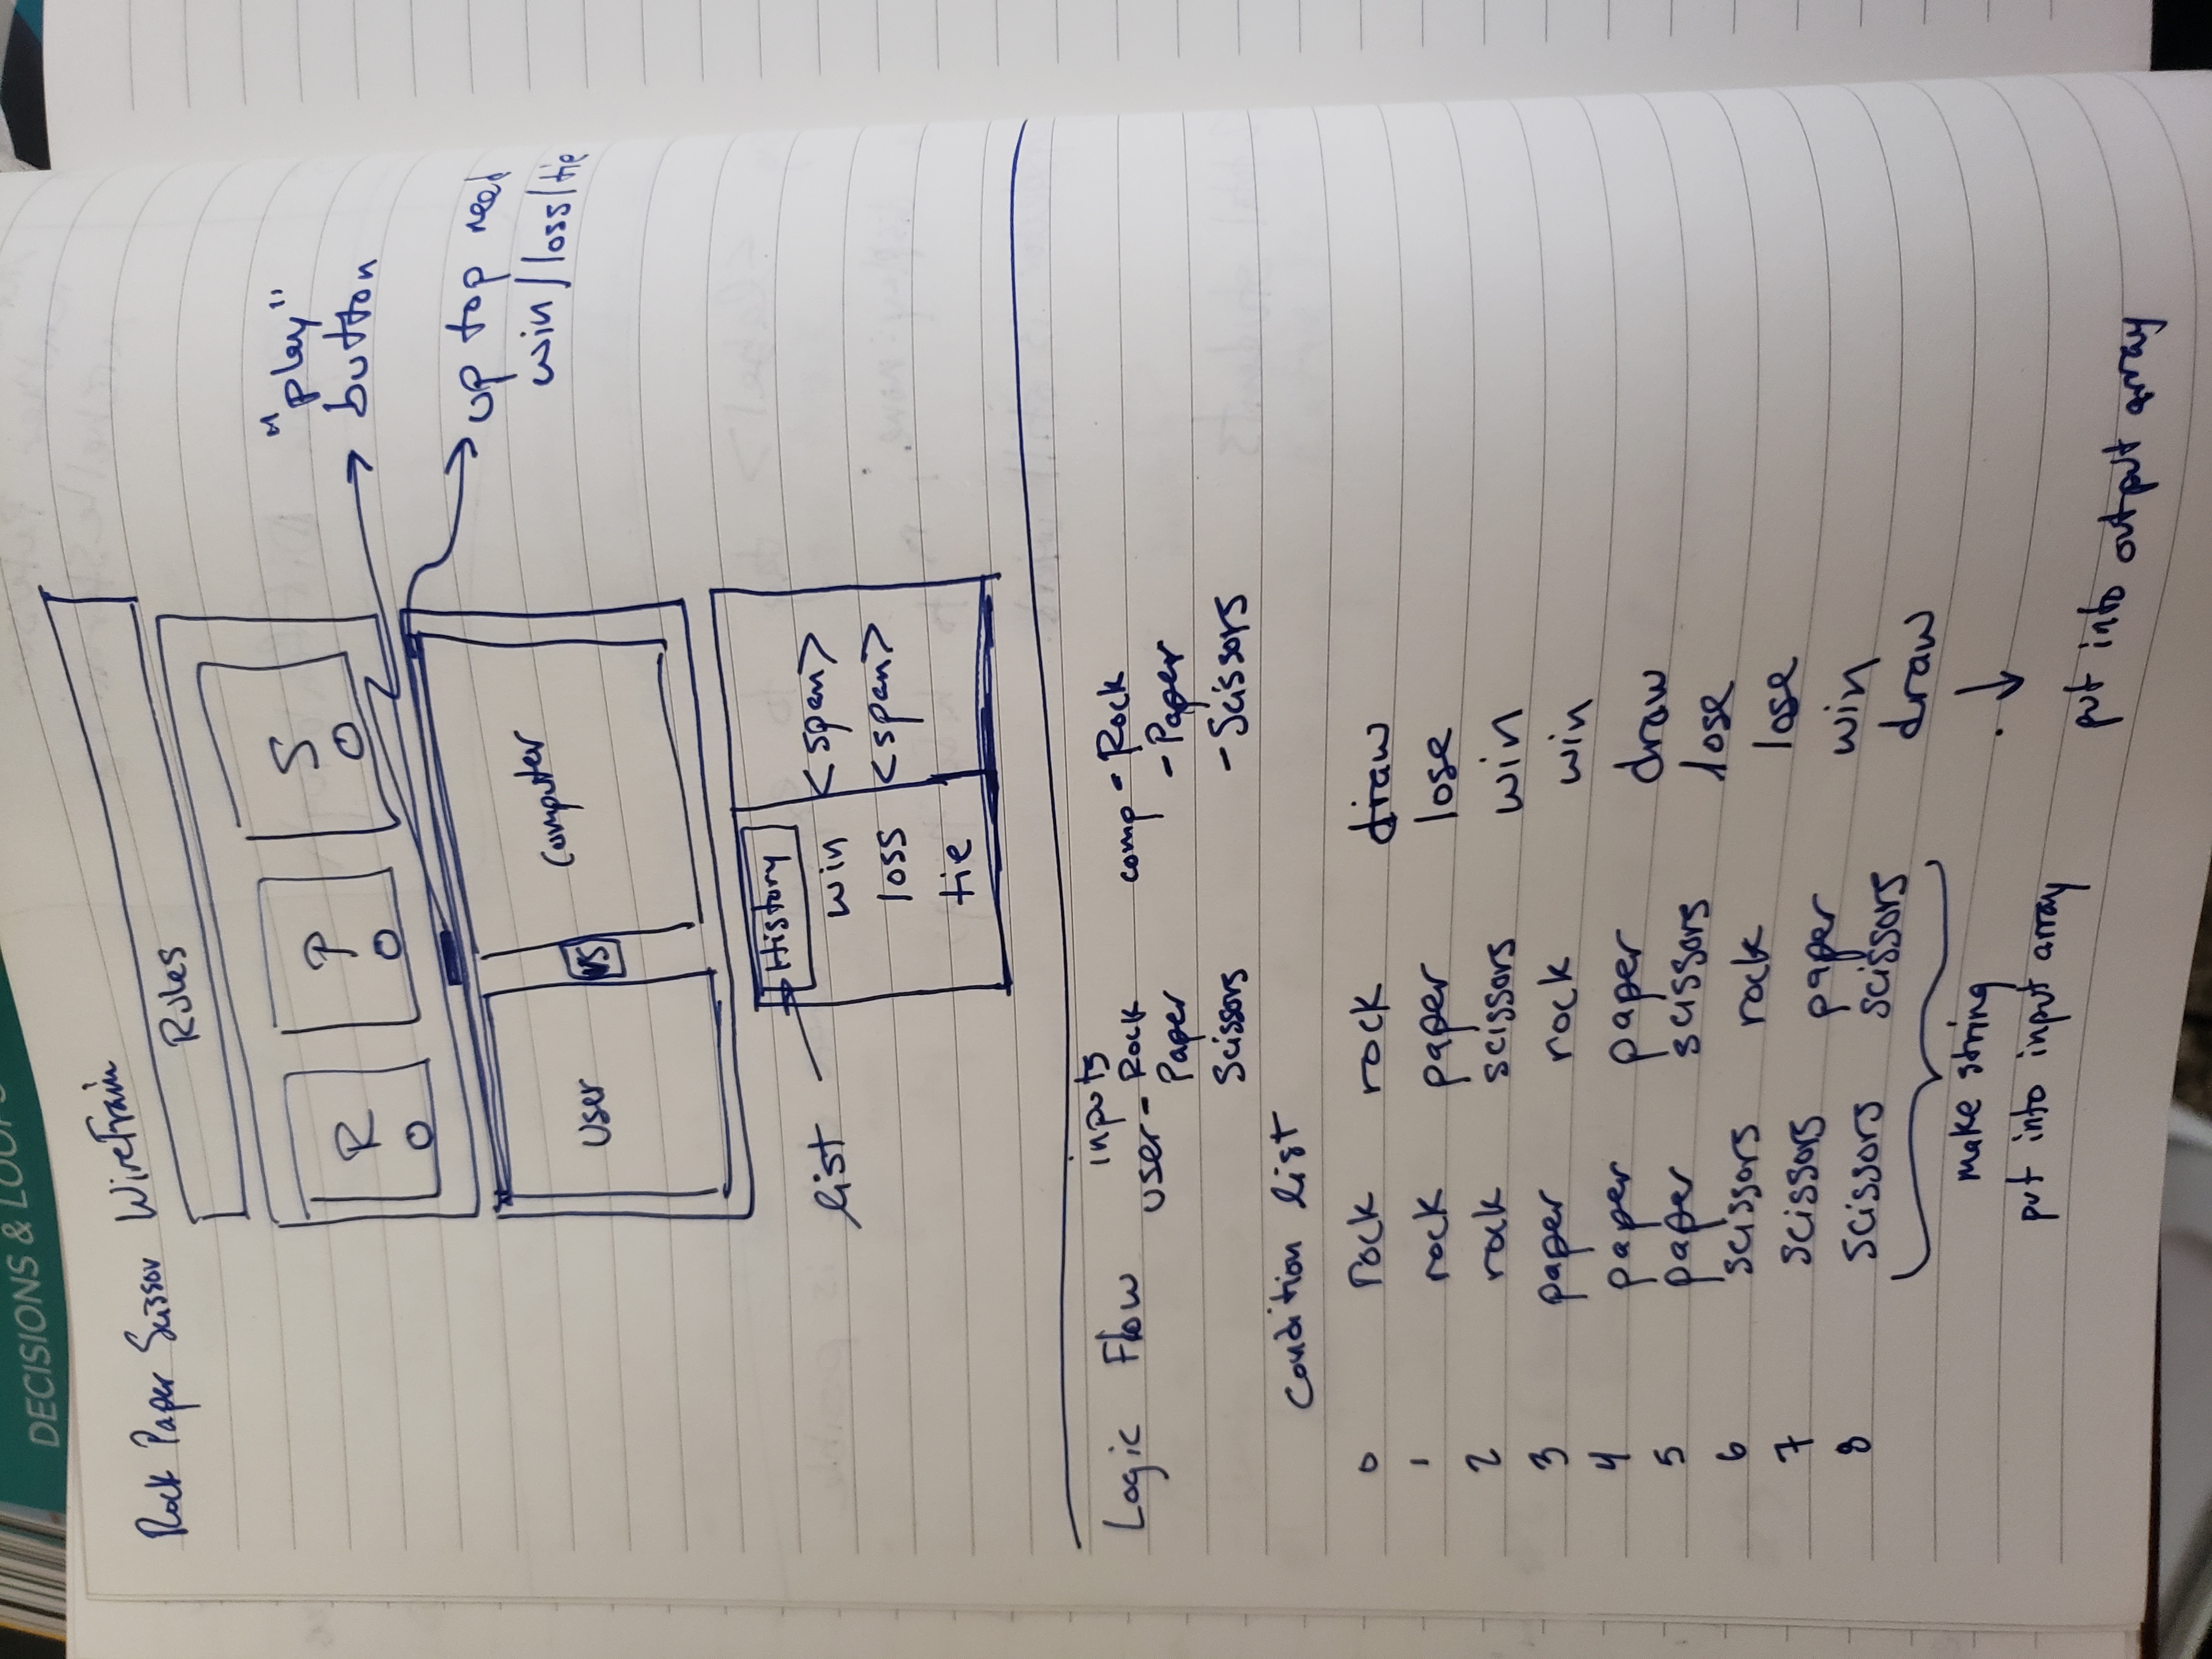 DECISIONS & LOOPS
Rock Paper Scissor WireFram
Rules
R
P
S
"play"
button
User
VS
Computer
up top need
win/loss/tie
list
History
win <span>
loss <span>
tie
Logic Flow
inputs
user - Rock
Paper
Scissors
comp - Rock
- Paper
- Scissors
Condition list
0 rock rock draw
1 rock paper lose
2 rock scissors win
3 paper rock win
4 paper paper draw
5 paper scissors lose
6 scissors rock lose
7 scissors paper win
8 scissors scissors draw
make string
put into input array
put into output array